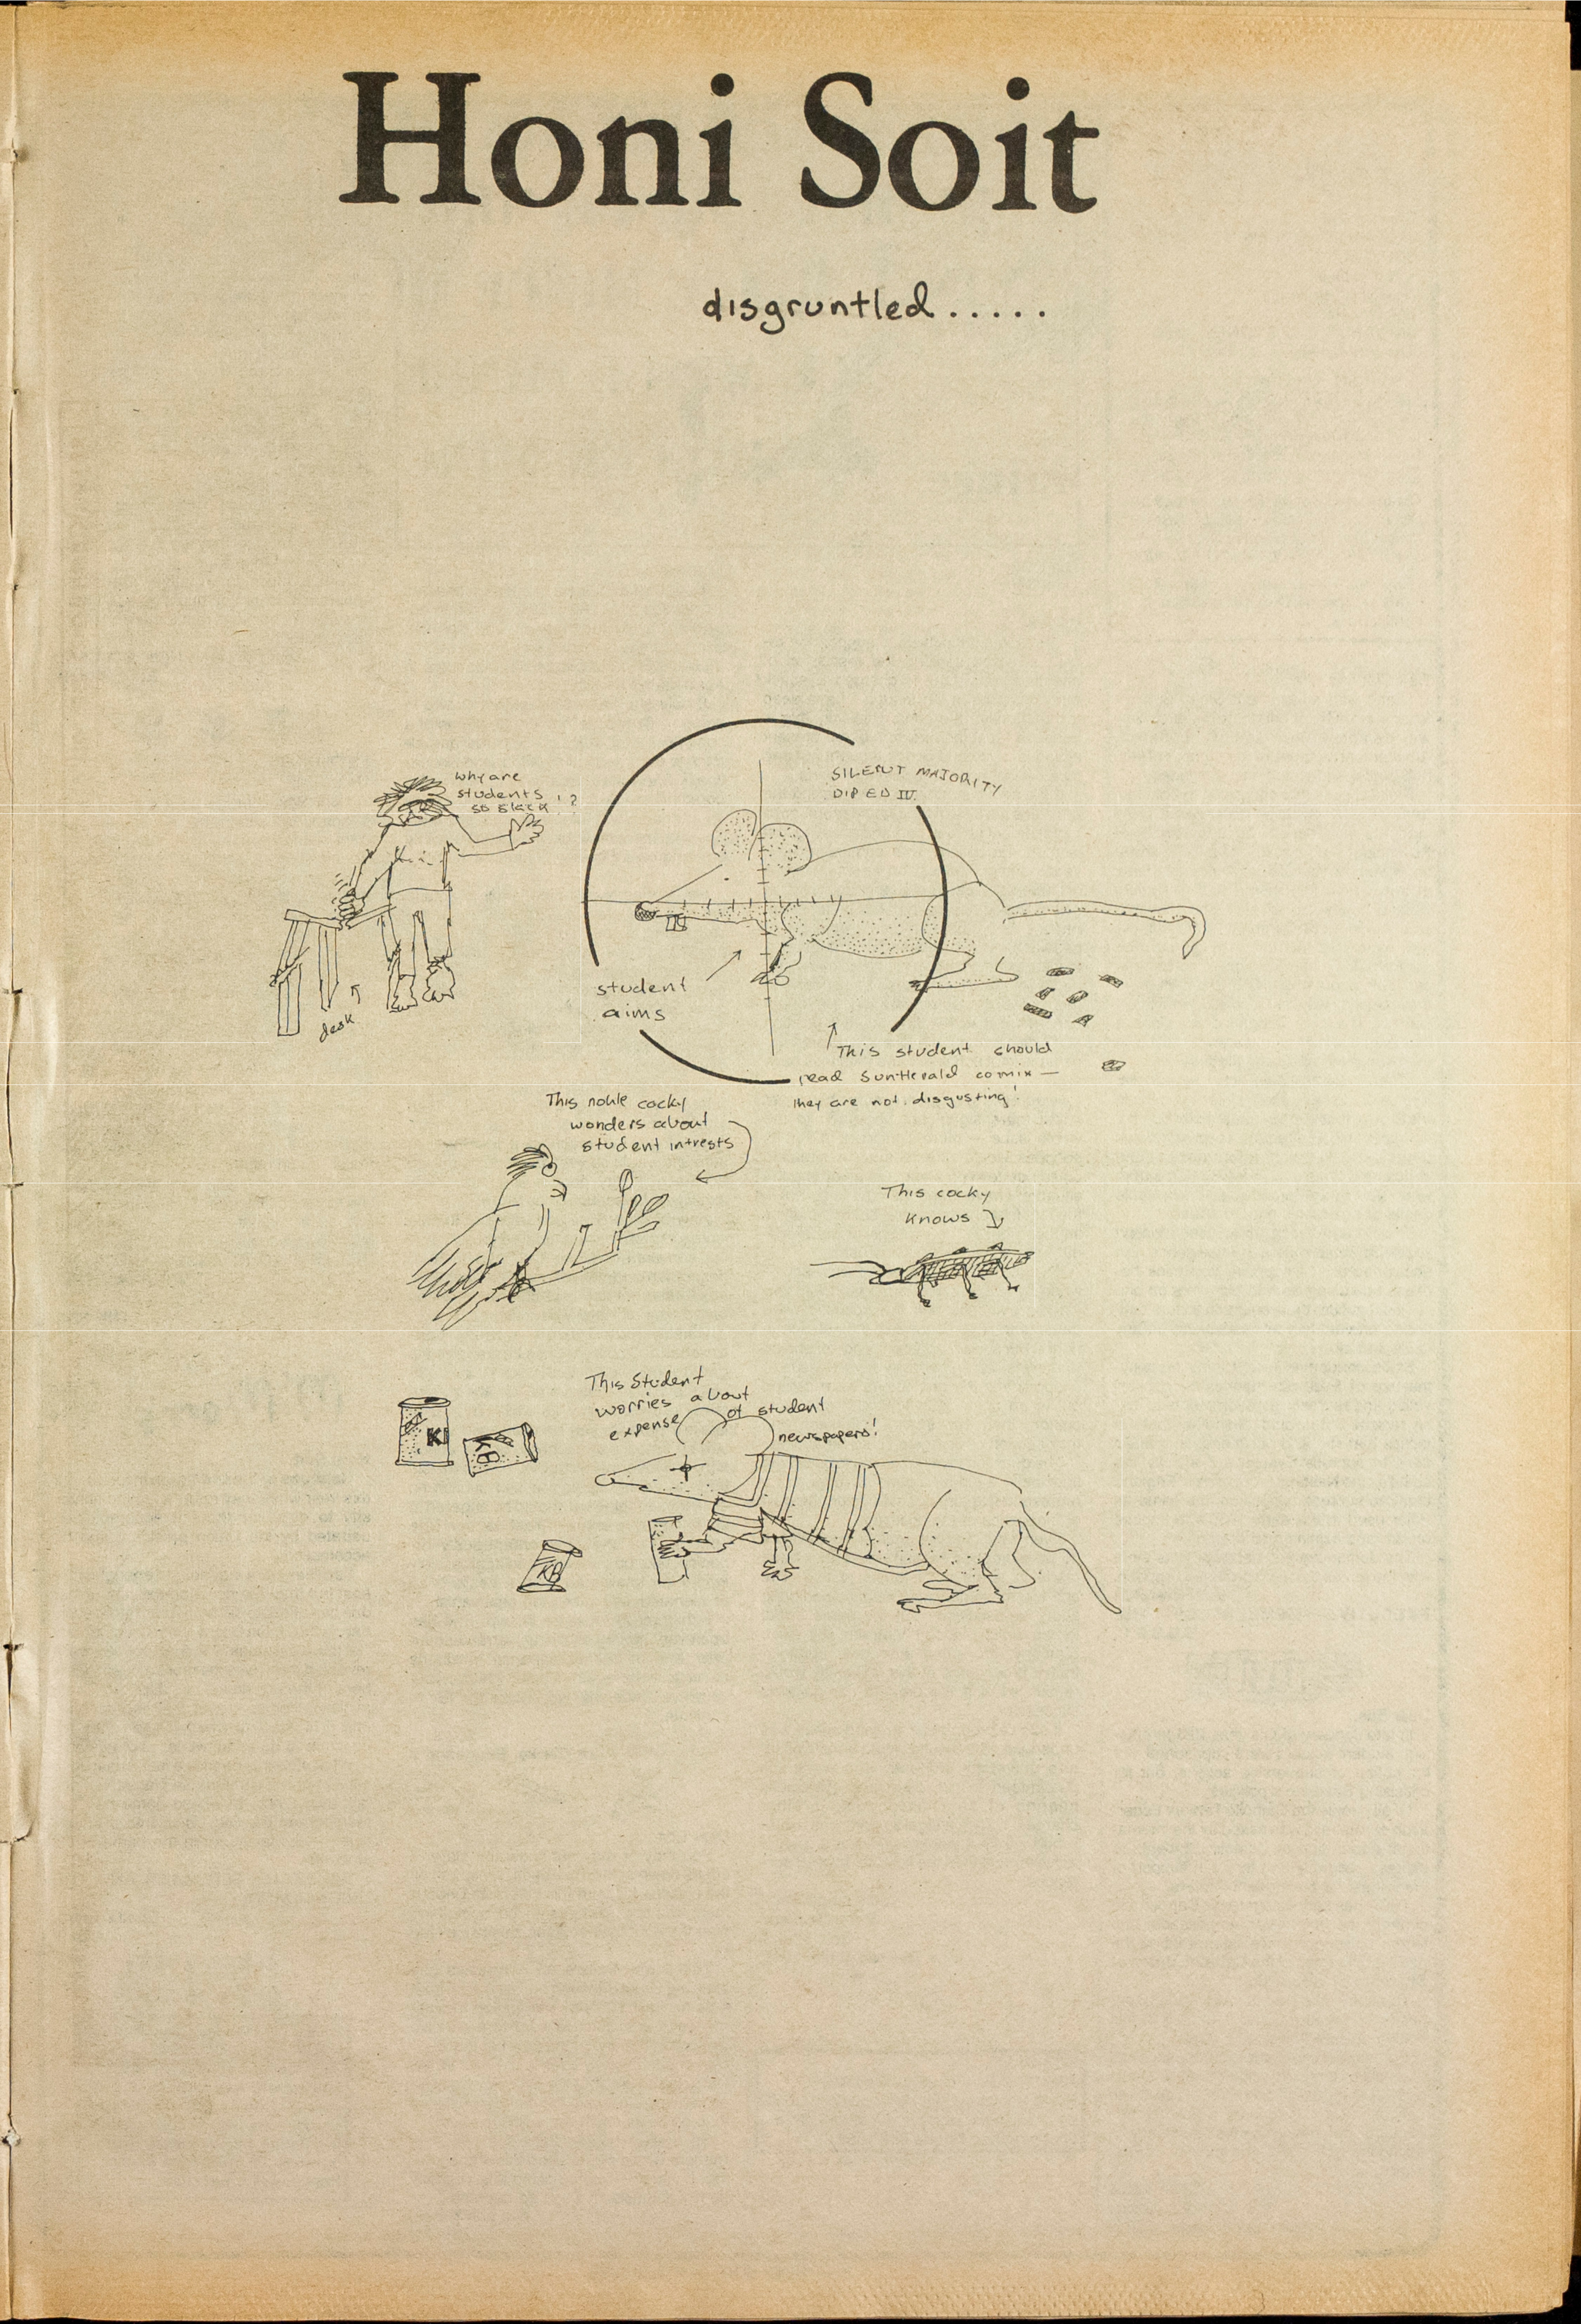 Honi Soit
disgruntled.....
why are
students
so slack!?
desk
SILENT MAJORITY
DIP ED IV.
student
aims
This student should
read Sun-Herald comix —
they are not disgusting!
This noble cocky
wonders about
student intrests
This cocky
knows
This Student
worries about
expense of student
newspapers!
K
KB
KB